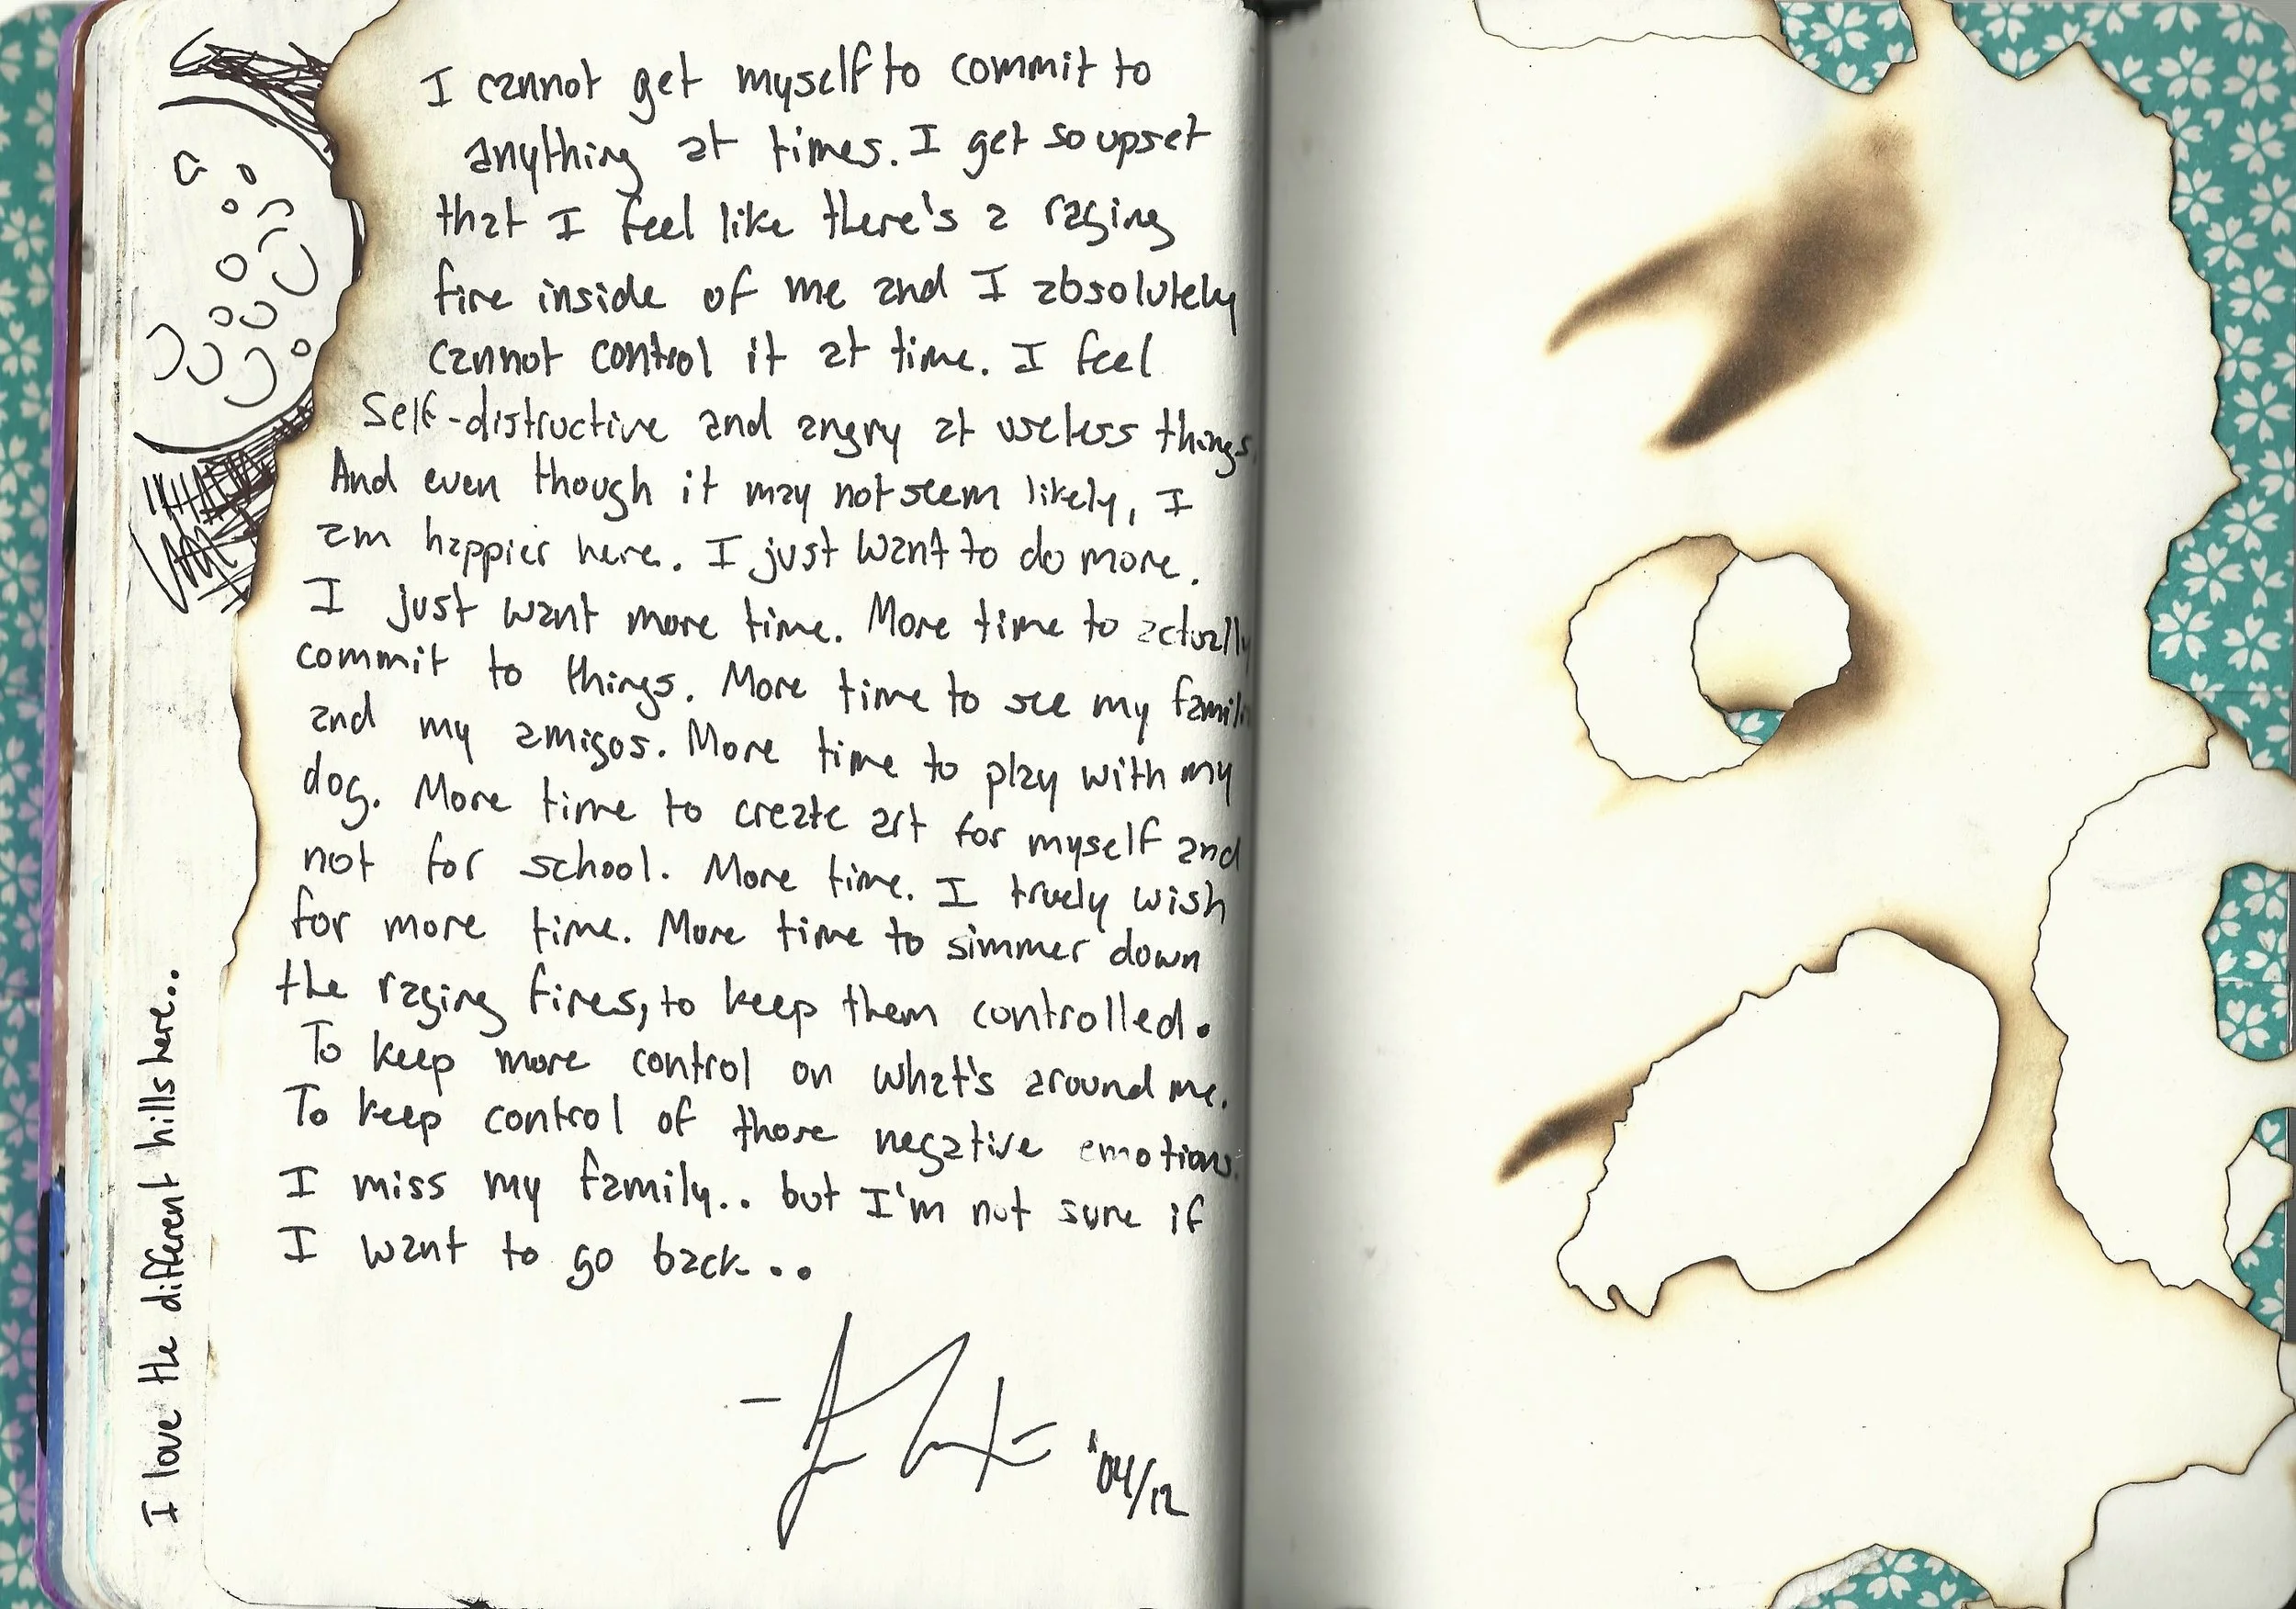 I cannot get myself to commit to
anything at times. I get so upset
that I feel like there's a raging
fire inside of me and I absolutely
cannot control it at time. I feel
self-distructive and angry at useless things.
And even though it may not seem likely, I
am happier here. I just want to do more.
I just want more time. More time to actually
commit to things. More time to see my family
and my amigos. More time to play with my
dog. More time to create art for myself and
not for school. More time. I truely wish
for more time. More time to simmer down
the raging fires, to keep them controlled.
To keep more control on what's around me.
To keep control of those negative emotions.
I miss my family.. but I'm not sure if
I want to go back...
'04/12
I love the different hills here...